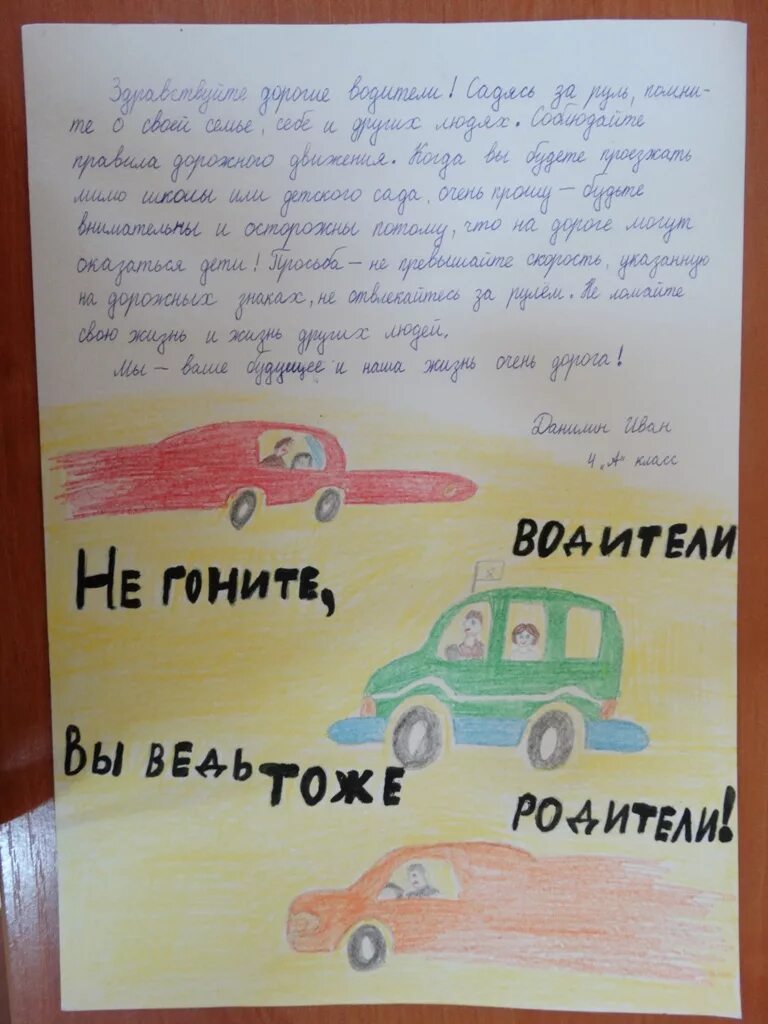 Здравствуйте дорогие водители! Садясь за руль, помни-
те о своей семье, себе и других людях. Соблюдайте
правила дорожного движения. Когда вы будете проезжать
мимо школы или детского сада, очень прошу – будьте
внимательны и осторожны потому, что на дороге могут
оказаться дети! Просьба – не превышайте скорость, указанную
на дорожных знаках, не отвлекайтесь за рулём. Не ломайте
свою жизнь и жизнь других людей.
Мы – ваше будущее и наша жизнь очень дорога!
Данилин Иван
4 „А" класс
ВОДИТЕЛИ
НЕ ГОНИТЕ,
ВЫ ВЕДЬ ТОЖЕ
РОДИТЕЛИ!